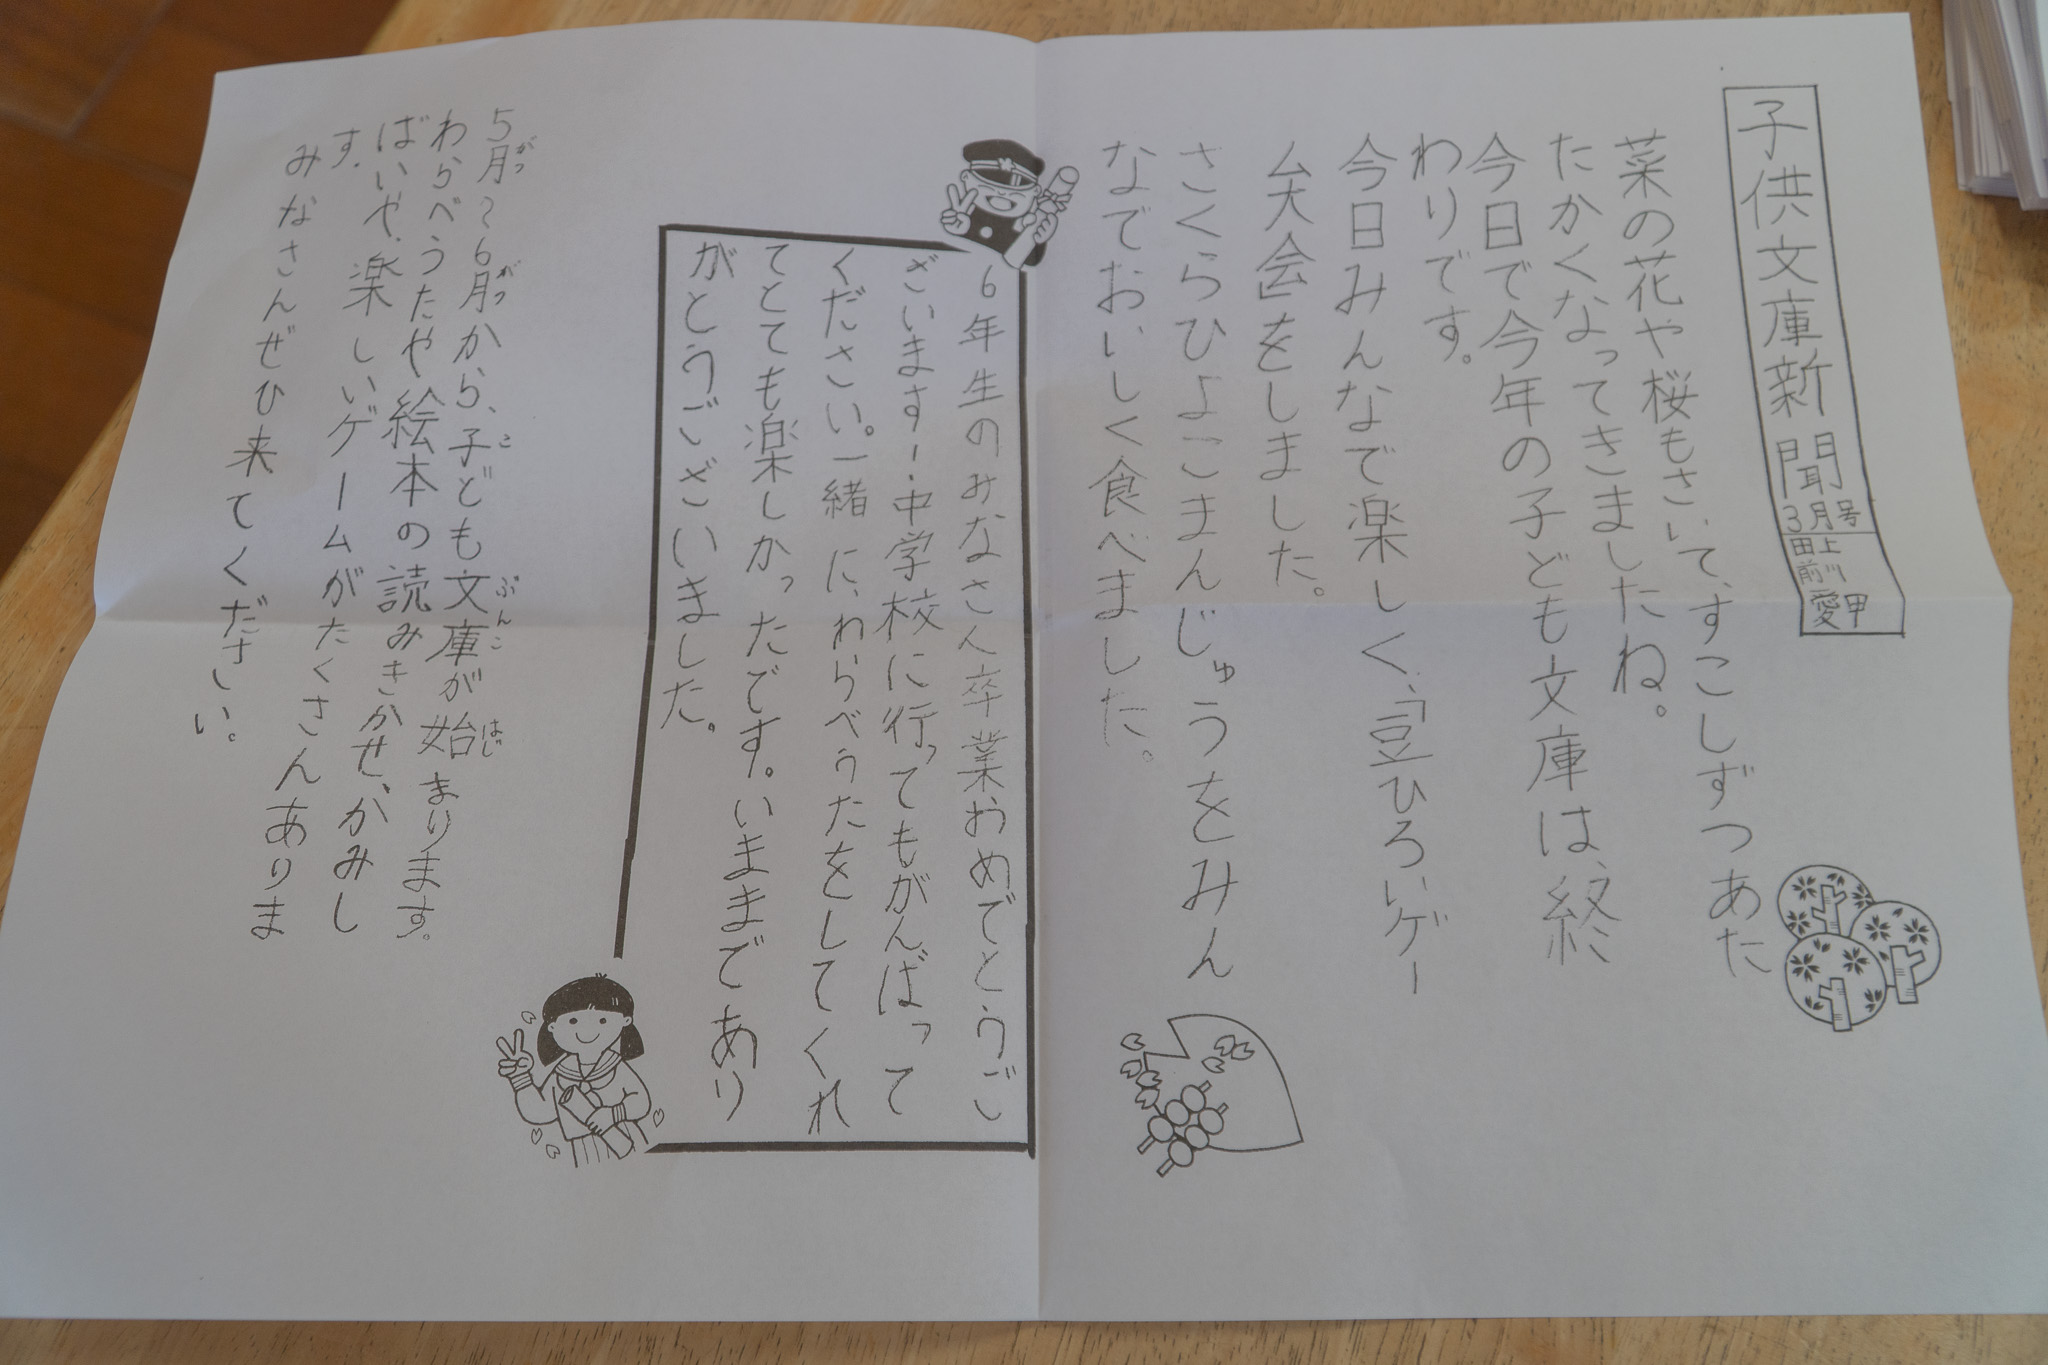 子供文庫新聞
3月号
田上
前川
愛甲
菜の花や桜もさいて、すこしずつあた
たかくなってきましたね。
今日で今年の子ども文庫は、終
わりです。
今日みんなで楽しく、「豆ひろいゲー
ム大会」をしました。
さくらひよこまんじゅうをみん
なでおいしく食べました。
6年生のみなさん卒業おめでとうご
ざいます!中学校に行ってもがんばって
ください。一緒に、わらべうたをしてくれ
てとても楽しかったです。いままであり
がとうございました。
5月〜6月から、子ども文庫が始まります。
がつ がつ こ ぶんこ はじ
わらべうたや絵本の読みきかせ、かみし
ばいや、楽しいゲームがたくさんありま
す。
みなさんぜひ来てください。